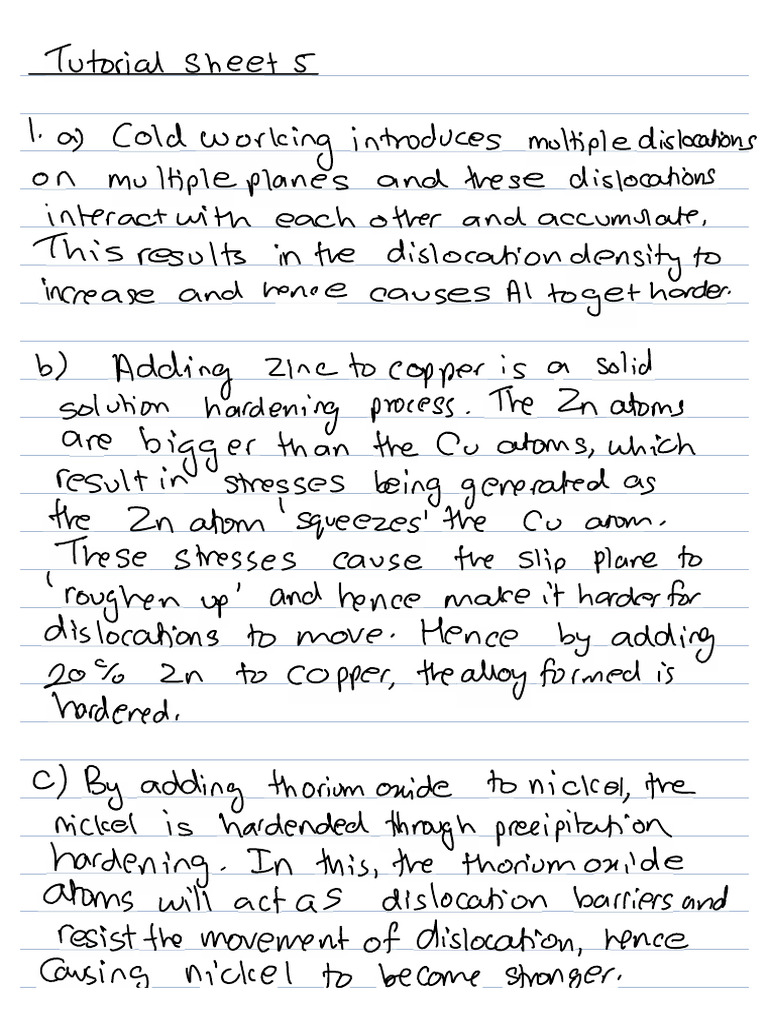 Tutorial Sheet 5
1. a) Cold working introduces multiple dislocations
on multiple planes and these dislocations
interact with each other and accumulate.
This results in the dislocation density to
increase and hence causes Al to get harder.
b) Adding zinc to copper is a solid
solution hardening process. The Zn atoms
are bigger than the Cu atoms, which
result in stresses being generated as
the Zn atom 'squeezes' the Cu atom.
These stresses cause the slip plane to
'roughen up' and hence make it harder for
dislocations to move. Hence by adding
20% Zn to copper, the alloy formed is
hardered.
c) By adding thorium oxide to nickel, the
nickel is hardended through precipitation
hardening. In this, the thorium oxide
atoms will act as dislocation barriers and
resist the movement of dislocation, hence
causing nickel to become stronger.